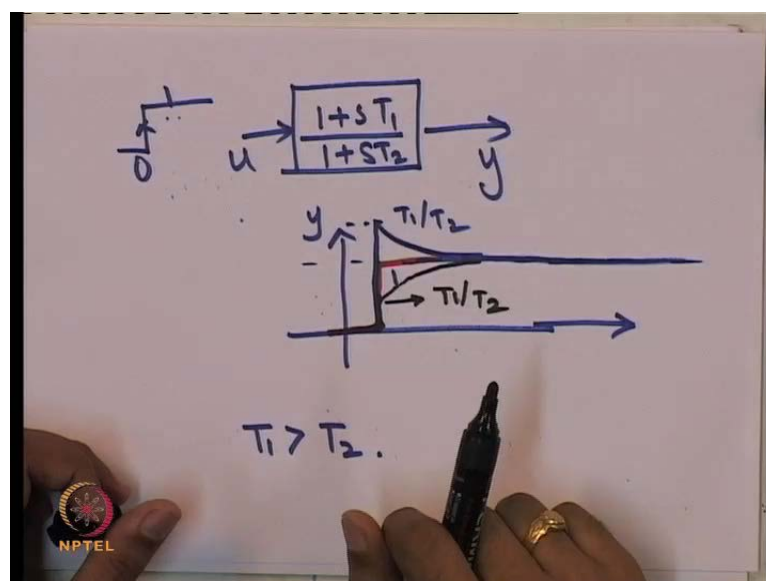 1
0
u
1+ST1
1+ST2
y
y
T1/T2
1
T1/T2
T1 > T2.
NPTEL